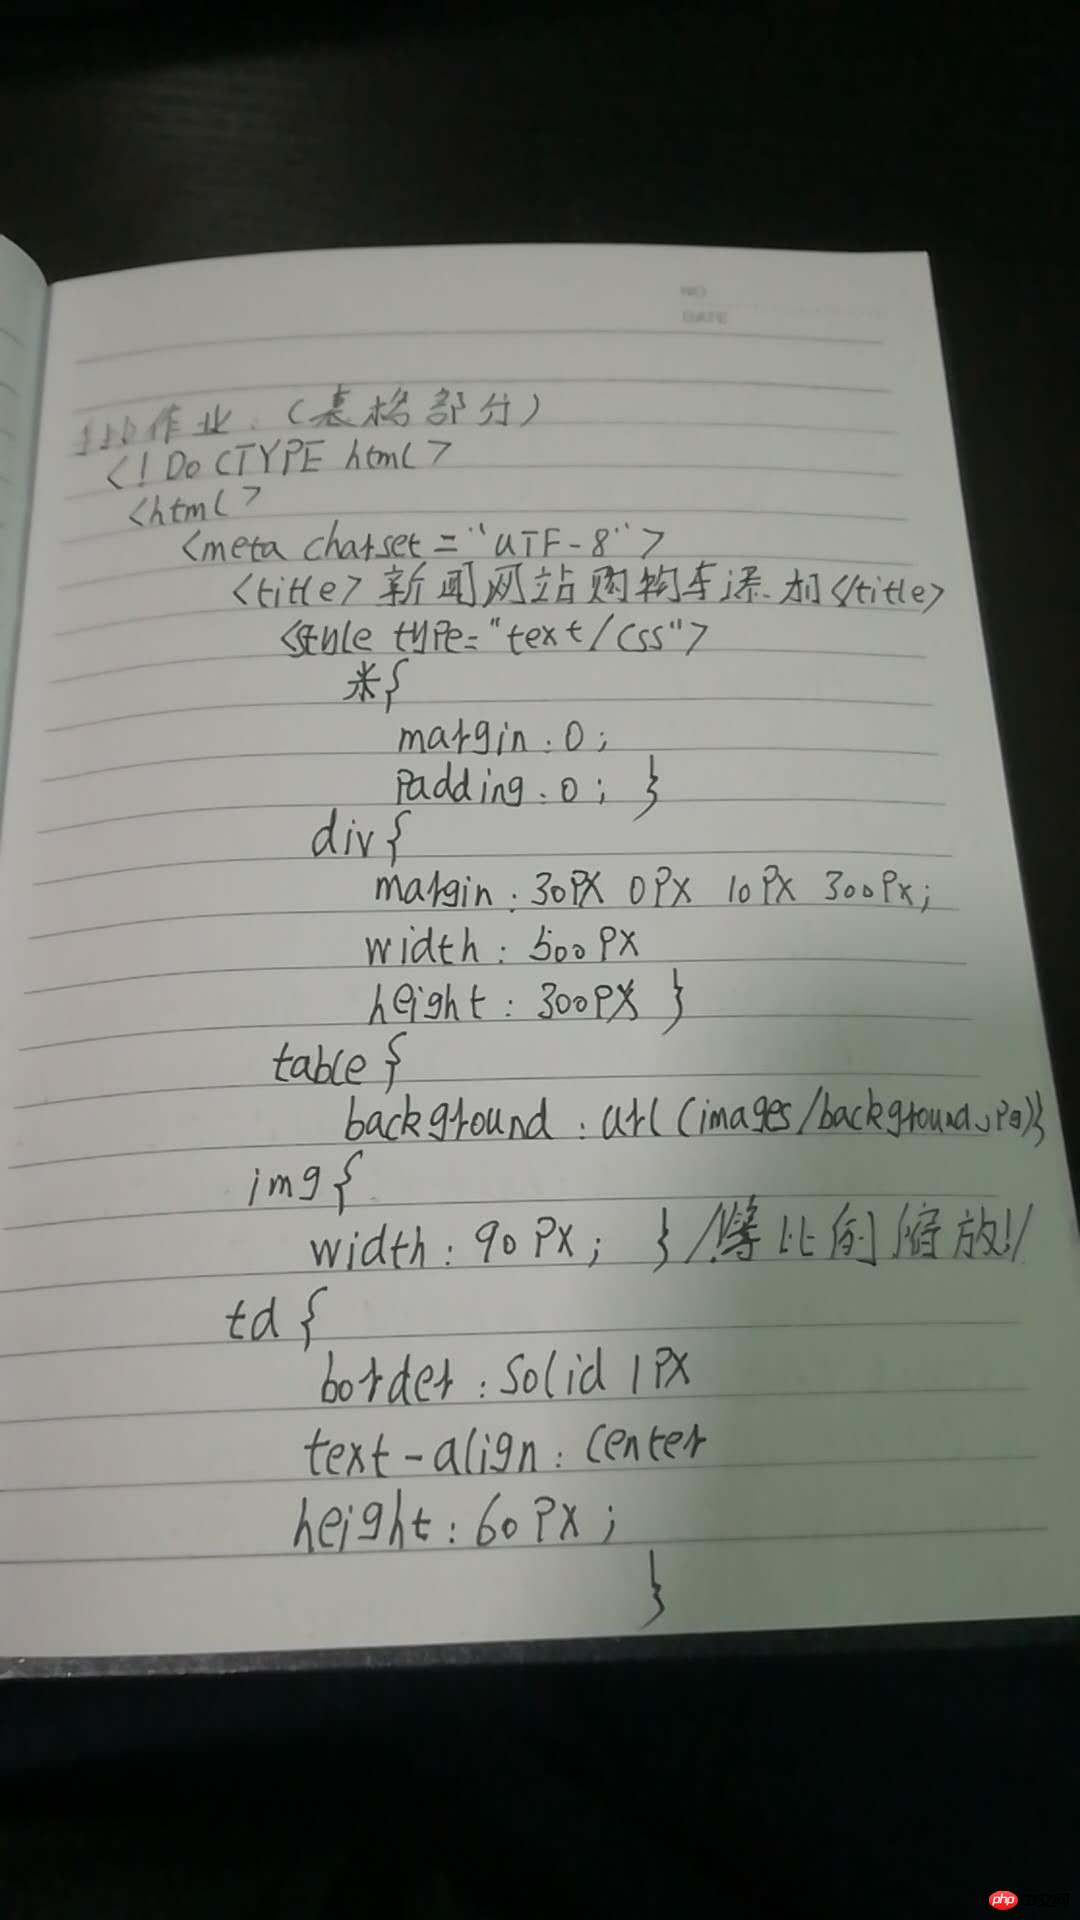 NO
DATE
作业.（表格部分）
<!DoCTYPE html>
<html>
<meta charset="UTF-8">
<title>新闻网站购物车添加</title>
<style type="text/css">
*{
margin:0;
Padding:0; }
div{
margin:30PX 0PX 10PX 300Px;
width:500PX
height:300PX }
table{
background:url(images/background.jpg)}
img{
width:90PX; } /!等比例缩放!/
td{
border:solid 1PX
text-align:center
height:60PX;
}
php中文网